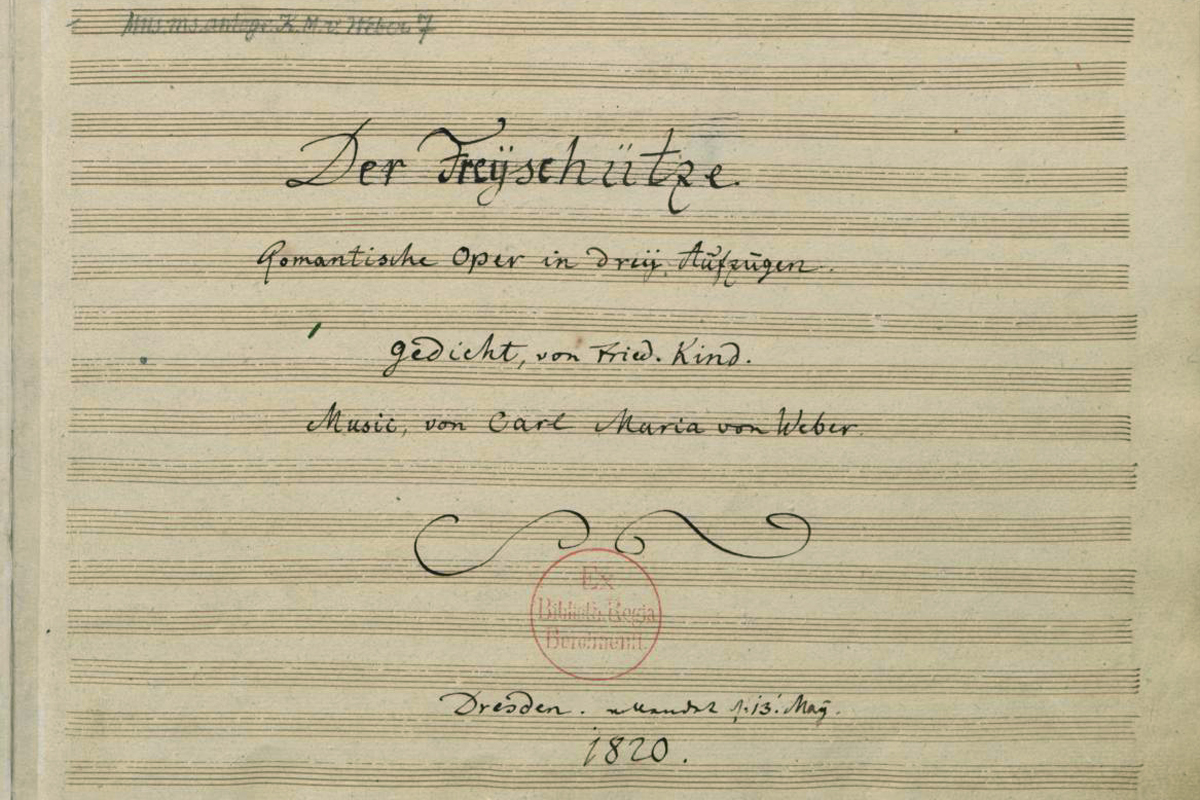 Mus. ms. autogr. K. M. v. Weber 7
Der Freÿschütze.
Romantische Oper in dreÿ Aufzügen.
Gedicht, von Fried. Kind.
Music, von Carl Maria von Weber.
Ex
Biblioth. Regia
Berolinenſi.
Dresden. vollendet d: 13. Maÿ.
1820.